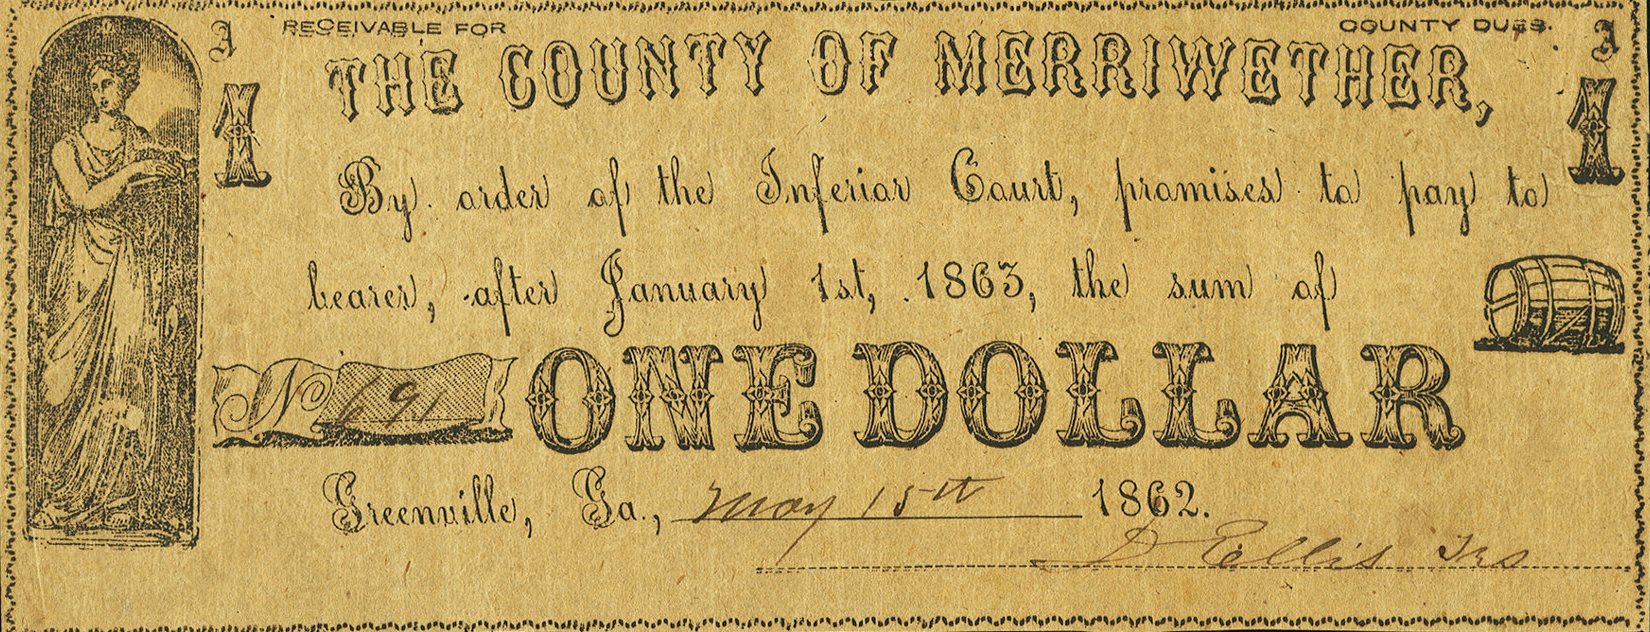 A RECEIVABLE FOR COUNTY DUES. A
1 THE COUNTY OF MERRIWETHER, 1
By order of the Inferior Court, promises to pay to
bearer, after January 1st, 1863, the sum of
No 691 ONE DOLLAR
Greenville, Ga., May 15th 1862.
D Ellis Trs